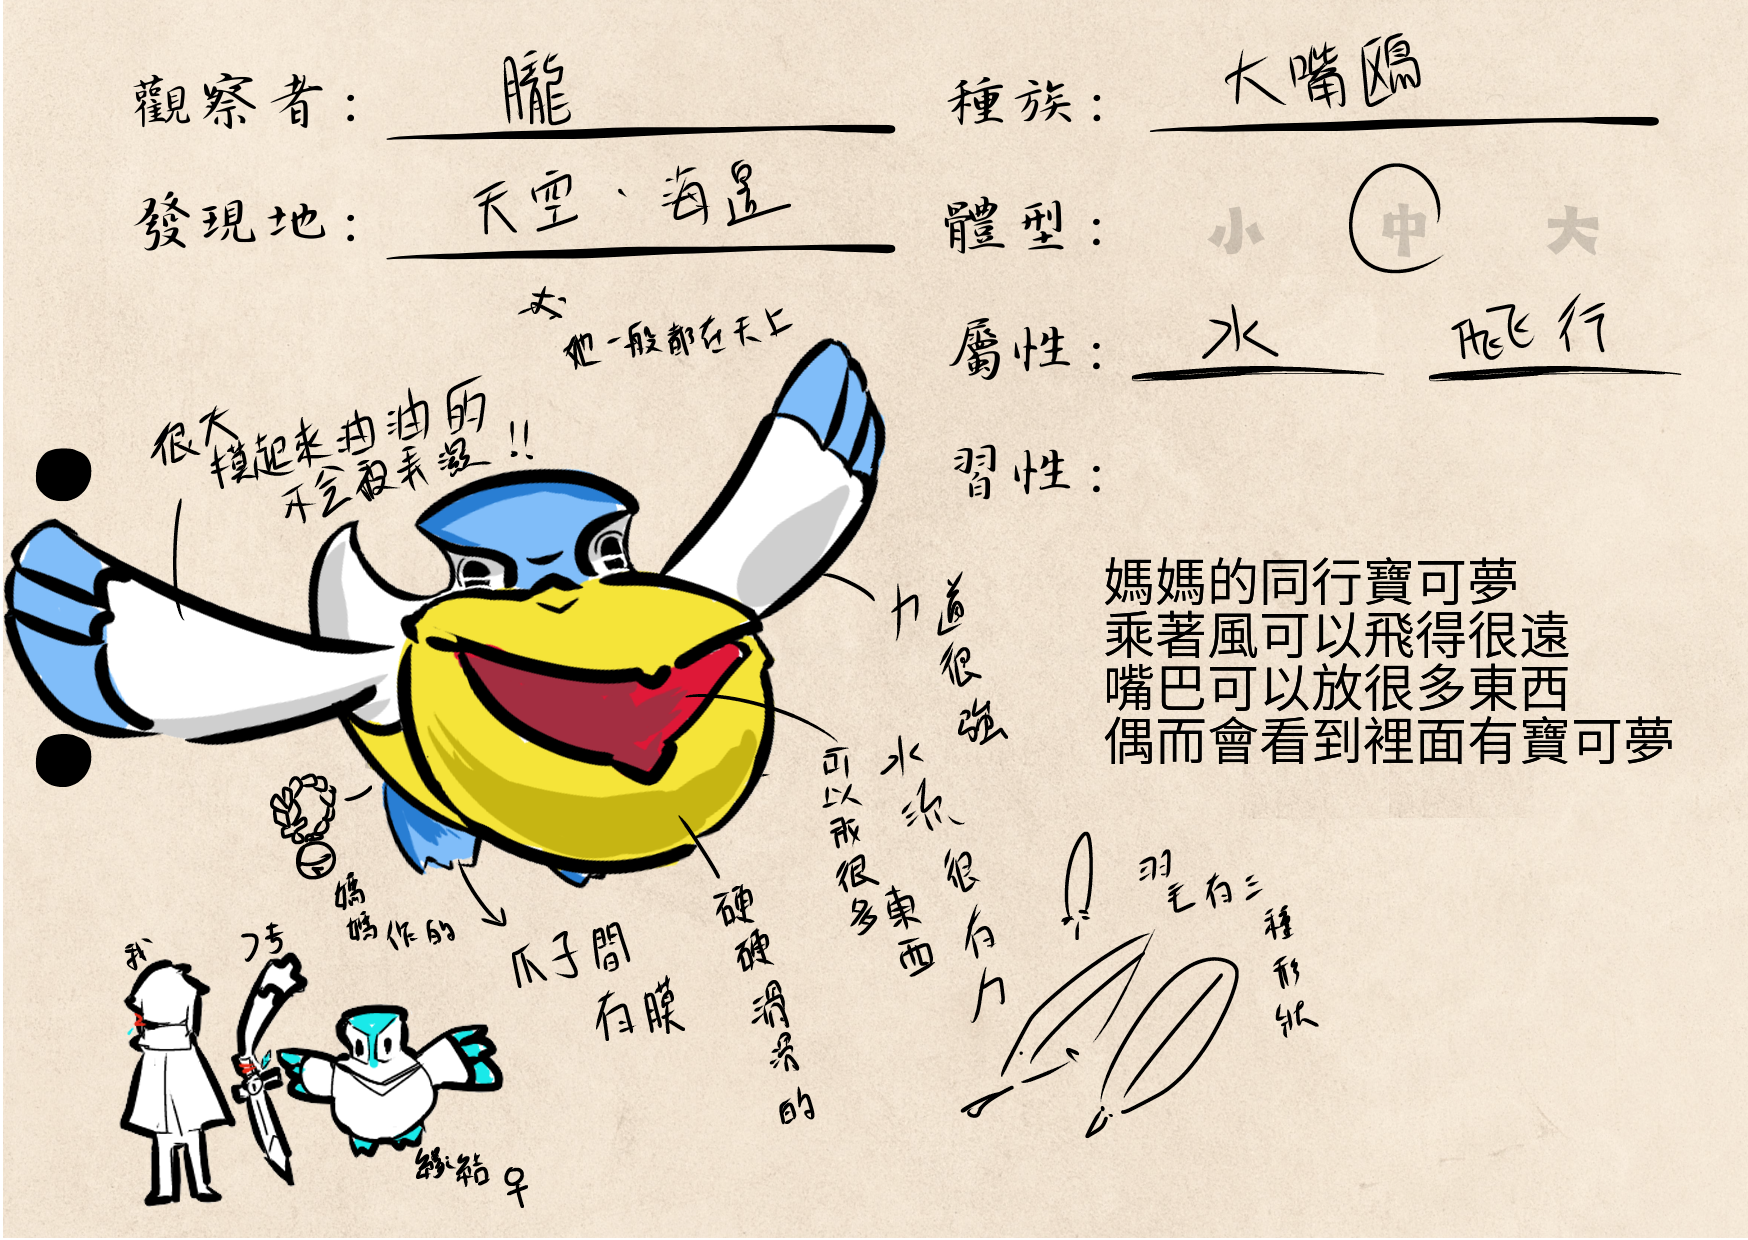 觀察者： 朧
種族： 大嘴鷗
發現地： 天空、海邊
體型： 小 中 大
她一般都在天上
屬性： 水 飛行
很大
摸起來油油的
不會被弄濕!!
習性：
媽媽的同行寶可夢
乘著風可以飛得很遠
嘴巴可以放很多東西
偶而會看到裡面有寶可夢
力道很強
可以放很多東西
水流很有力
羽毛有三種形狀
媽媽作的
爪子間
有膜
硬硬滑滑的
我
緣結♀